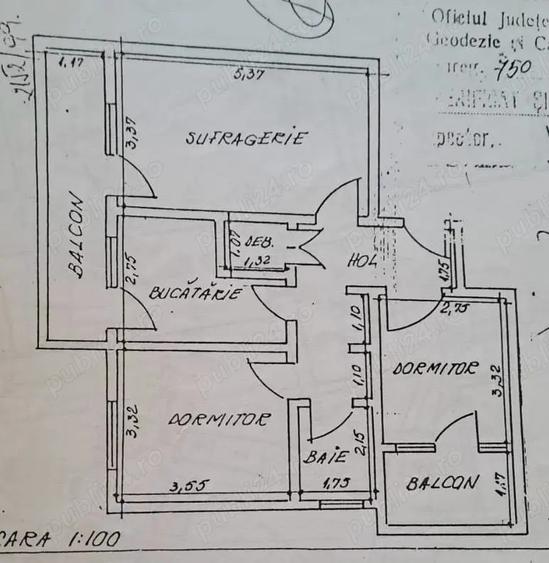 Oficiul Județe
Geodezie și C
750
1,17
5,37
3,37
SUFRAGERIE
BALCON
2,75
BUCĂTĂRIE
1.07
DEB.
1,32
HOL
1,75
2,75
1,10
1,10
DORMITOR
3,32
3,32
DORMITOR
2,15
BAIE
3,55
1,75
BALCON
1,17
CARA 1:100
publi24.ro